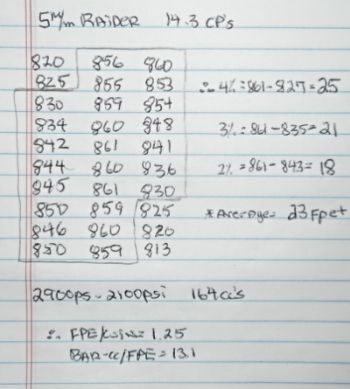 5m/m RAIDER 14.3 CP's
820 856 860
825 855 853 ∴ 4% = 861-827=25
830 859 854
834 860 848 3% = 861-835=21
842 861 841
844 860 836 2% = 861-843= 18
845 861 830
850 859 825 * Average= 23 Fpet
846 860 820
850 859 813
2900psi - 2100psi 164cc's
∴ FPE/cu in = 1.25
BAR-cc/FPE = 13.1